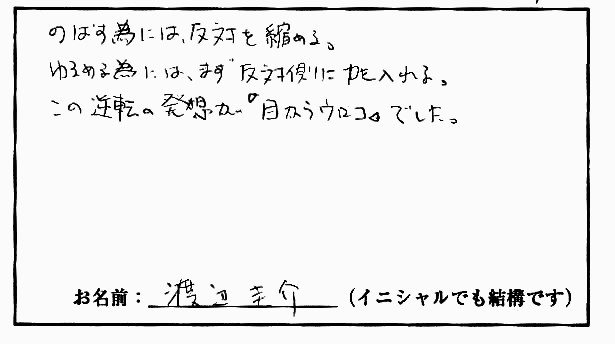 のばす為には、反対を縮める。
ゆるめる為には、まず反対側に力を入れる。
この逆転の発想が『目からウロコ』でした。
お名前：渡辺圭介（イニシャルでも結構です）